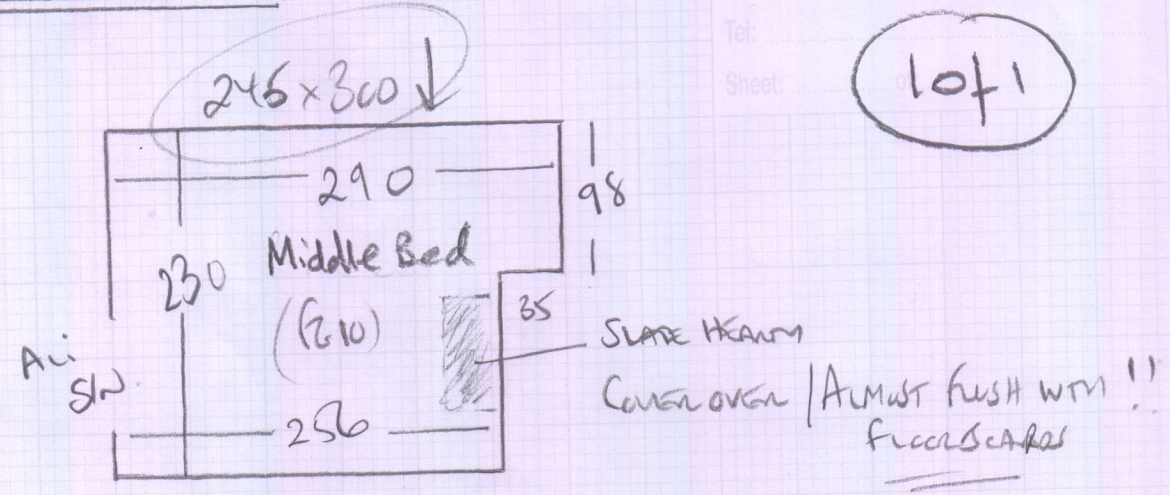 Tel:
Sheet: of
1 of 1
245 x 300
290
98
Middle Bed
230
(G10)
35
SLATE HEARTH
COVER OVER / ALMOST FLUSH WITH !!
FLOORBOARDS
ALi
S/W
256